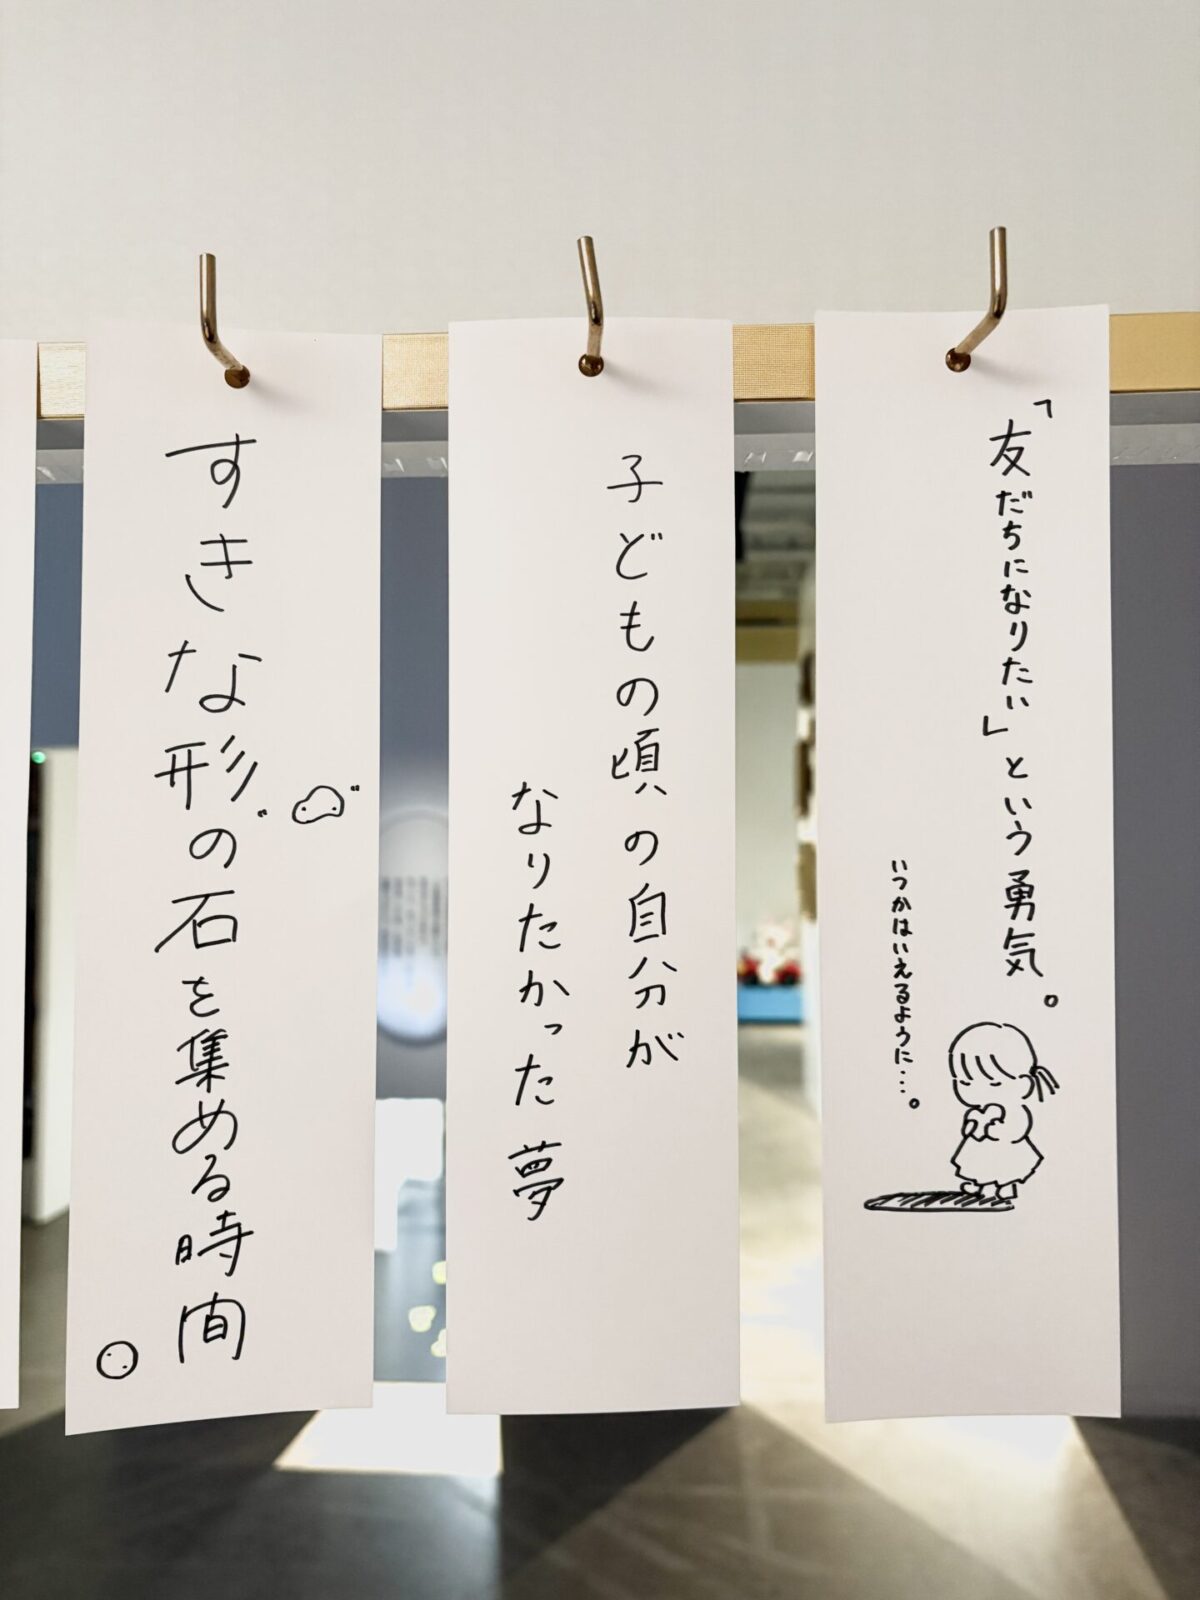 すきな形の石を集める時間
子どもの頃の自分が
なりたかった夢
「友だちになりたい」という勇気。
いつかはいえるように…。